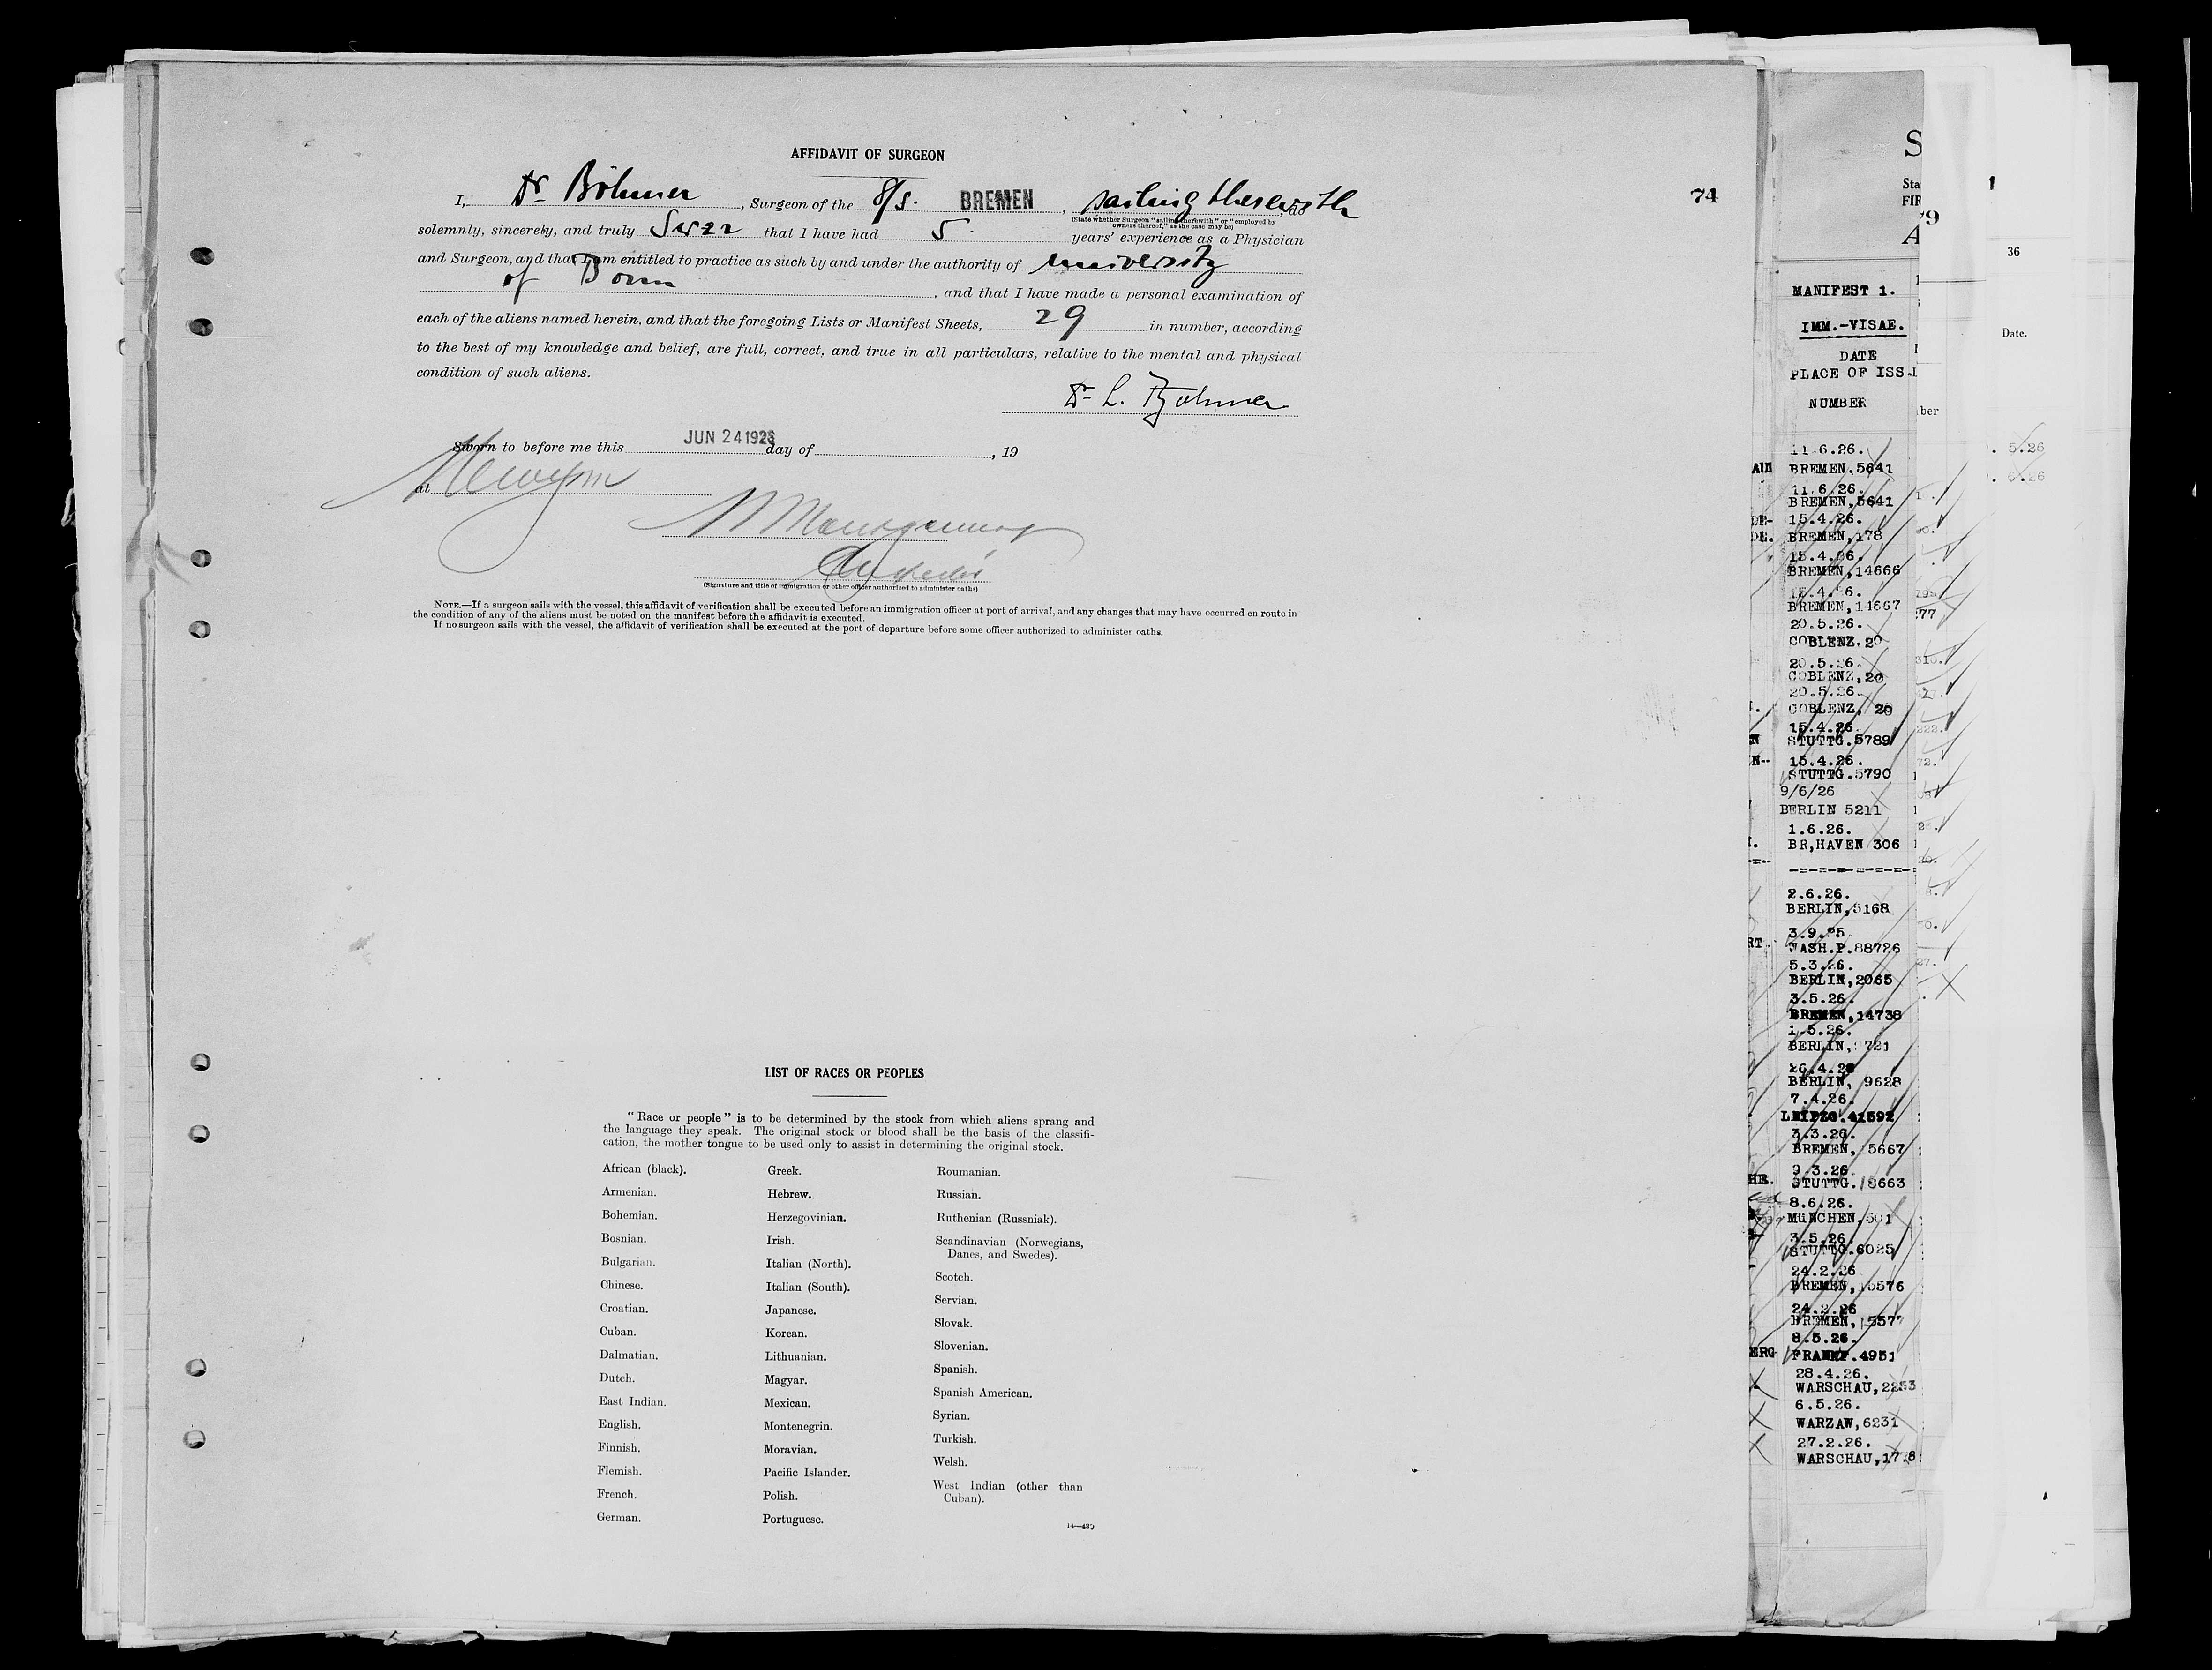 AFFIDAVIT OF SURGEON
74
I, Dr Böhmer, Surgeon of the S/S. BREMEN, sailing therewith, do
(State whether Surgeon "sailing therewith" or "employed by
owners thereof," as the case may be)
solemnly, sincerely, and truly swear that I have had 5 years' experience as a Physician
and Surgeon, and that I am entitled to practice as such by and under the authority of University
of Bonn, and that I have made a personal examination of
each of the aliens named herein, and that the foregoing Lists or Manifest Sheets, 29 in number, according
to the best of my knowledge and belief, are full, correct, and true in all particulars, relative to the mental and physical
condition of such aliens.
Dr L. Böhmer
Sworn to before me this JUN 24 1926 day of , 19
at
(Signature and title of immigration or other officer authorized to administer oaths)
NOTE.—If a surgeon sails with the vessel, this affidavit of verification shall be executed before an immigration officer at port of arrival, and any changes that may have occurred en route in
the condition of any of the aliens must be noted on the manifest before the affidavit is executed.
If no surgeon sails with the vessel, the affidavit of verification shall be executed at the port of departure before some officer authorized to administer oaths.
LIST OF RACES OR PEOPLES
"Race or people" is to be determined by the stock from which aliens sprang and
the language they speak. The original stock or blood shall be the basis of the classifi-
cation, the mother tongue to be used only to assist in determining the original stock.
African (black).
Armenian.
Bohemian.
Bosnian.
Bulgarian.
Chinese.
Croatian.
Cuban.
Dalmatian.
Dutch.
East Indian.
English.
Finnish.
Flemish.
French.
German.
Greek.
Hebrew.
Herzegovinian.
Irish.
Italian (North).
Italian (South).
Japanese.
Korean.
Lithuanian.
Magyar.
Mexican.
Montenegrin.
Moravian.
Pacific Islander.
Polish.
Portuguese.
Roumanian.
Russian.
Ruthenian (Russniak).
Scandinavian (Norwegians,
Danes, and Swedes).
Scotch.
Servian.
Slovak.
Slovenian.
Spanish.
Spanish American.
Syrian.
Turkish.
Welsh.
West Indian (other than
Cuban).
MANIFEST 1.
IMM.-VISAE.
DATE
PLACE OF ISS
NUMBER
11.6.26.
BREMEN,5641
11.6.26.
BREMEN,5641
15.4.26.
BREMEN,178
15.4.26.
BREMEN,14666
15.4.26.
BREMEN,14667
20.5.26.
COBLENZ,20
20.5.26.
COBLENZ,20
20.5.26.
COBLENZ, 20
15.4.26.
STUTTG.5789
15.4.26.
STUTTG.5790
9/6/26
BERLIN 5211
1.6.26.
BR,HAVEN 306
2.6.26.
BERLIN,5168
3.9.25.
WASH.P.88726
5.3.26.
BERLIN,2065
3.5.26.
BREMEN,14738
1.5.26.
BERLIN, 721
26.4.26
BERLIN, 9628
7.4.26.
LEIPZG.41592
3.3.26.
BREMEN, 5667
9.3.26.
STUTTG. 8663
8.6.26.
MüNCHEN,501
3.5.26.
STUTTG.6025
24.2.26
BREMEN,15576
24.2.26
BREMEN,15577
8.5.26.
FRANKF.4951
28.4.26.
WARSCHAU,2253
6.5.26.
WARZAW,6231
27.2.26.
WARSCHAU,17
36
Date.